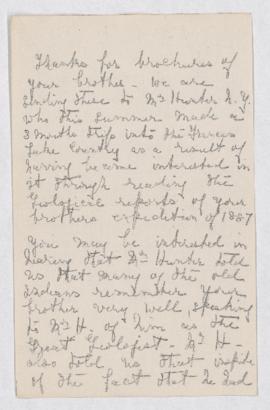 Thanks for brochures of
your brother – we are
sending these to Mr Hunter N.Y.
who this summer made a
3 months trip into the Frances
Lake Country as a result of
having become interested in
it through reading the
Geological reports of your
brothers expedition of 1887
You may be interested in
hearing that Mr Hunter told
us that many of the old
Indians remember your
brother very well, speaking
to Mr H. of him as the
Great Geologist. Mr H–
also told us that inspite
of the fact that he had